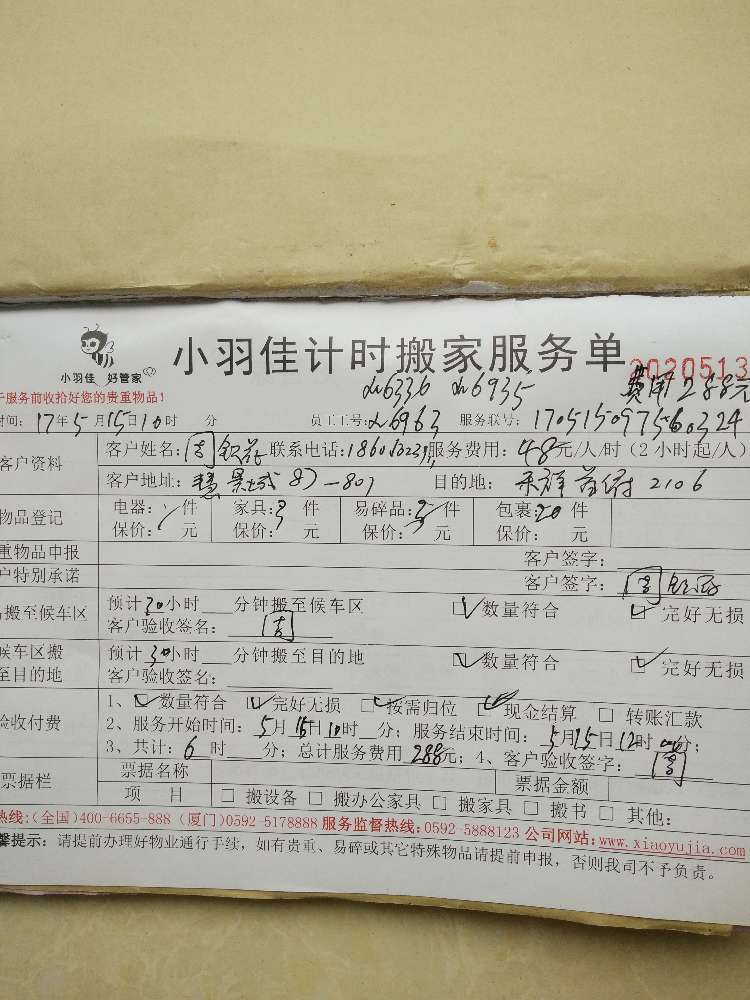 小羽佳 好管家
小羽佳计时搬家服务单 2020513
服务前收拾好您的贵重物品！ 6336 6935 费用288元
时间：17年5月15日10时 分 员工工号：6963 服务联号：170515097560324
客户资料 客户姓名：周 联系电话： 服务费用：48元/人/时（2小时起/人）
客户地址： 目的地： 2106
物品登记 电器： 件 家具：3件 易碎品： 件 包裹：20件
保价： 元 保价： 元 保价： 元 保价： 元
重物品申报 客户签字：
户特别承诺 客户签字：周
搬至候车区 预计20小时 分钟搬至候车区 数量符合 完好无损
客户验收签名：周
候车区搬 预计30小时 分钟搬至目的地 数量符合 完好无损
至目的地 客户验收签名：
验收付费 1、数量符合 完好无损 按需归位 现金结算 转账汇款
2、服务开始时间：5月15日10时 分；服务结束时间：5月15日12时 分；
3、共计：6时 分；总计服务费用288元；4、客户验收签字：周
票据栏 票据名称 票据金额
项 目 搬设备 搬办公家具 搬家具 搬书 其他：
热线：（全国）400-6655-888（厦门）0592-5178888 服务监督热线：0592-5888123 公司网站：www.xiaoyujia.com
馨提示：请提前办理好物业通行手续，如有贵重、易碎或其它特殊物品请提前申报，否则我司不予负责。